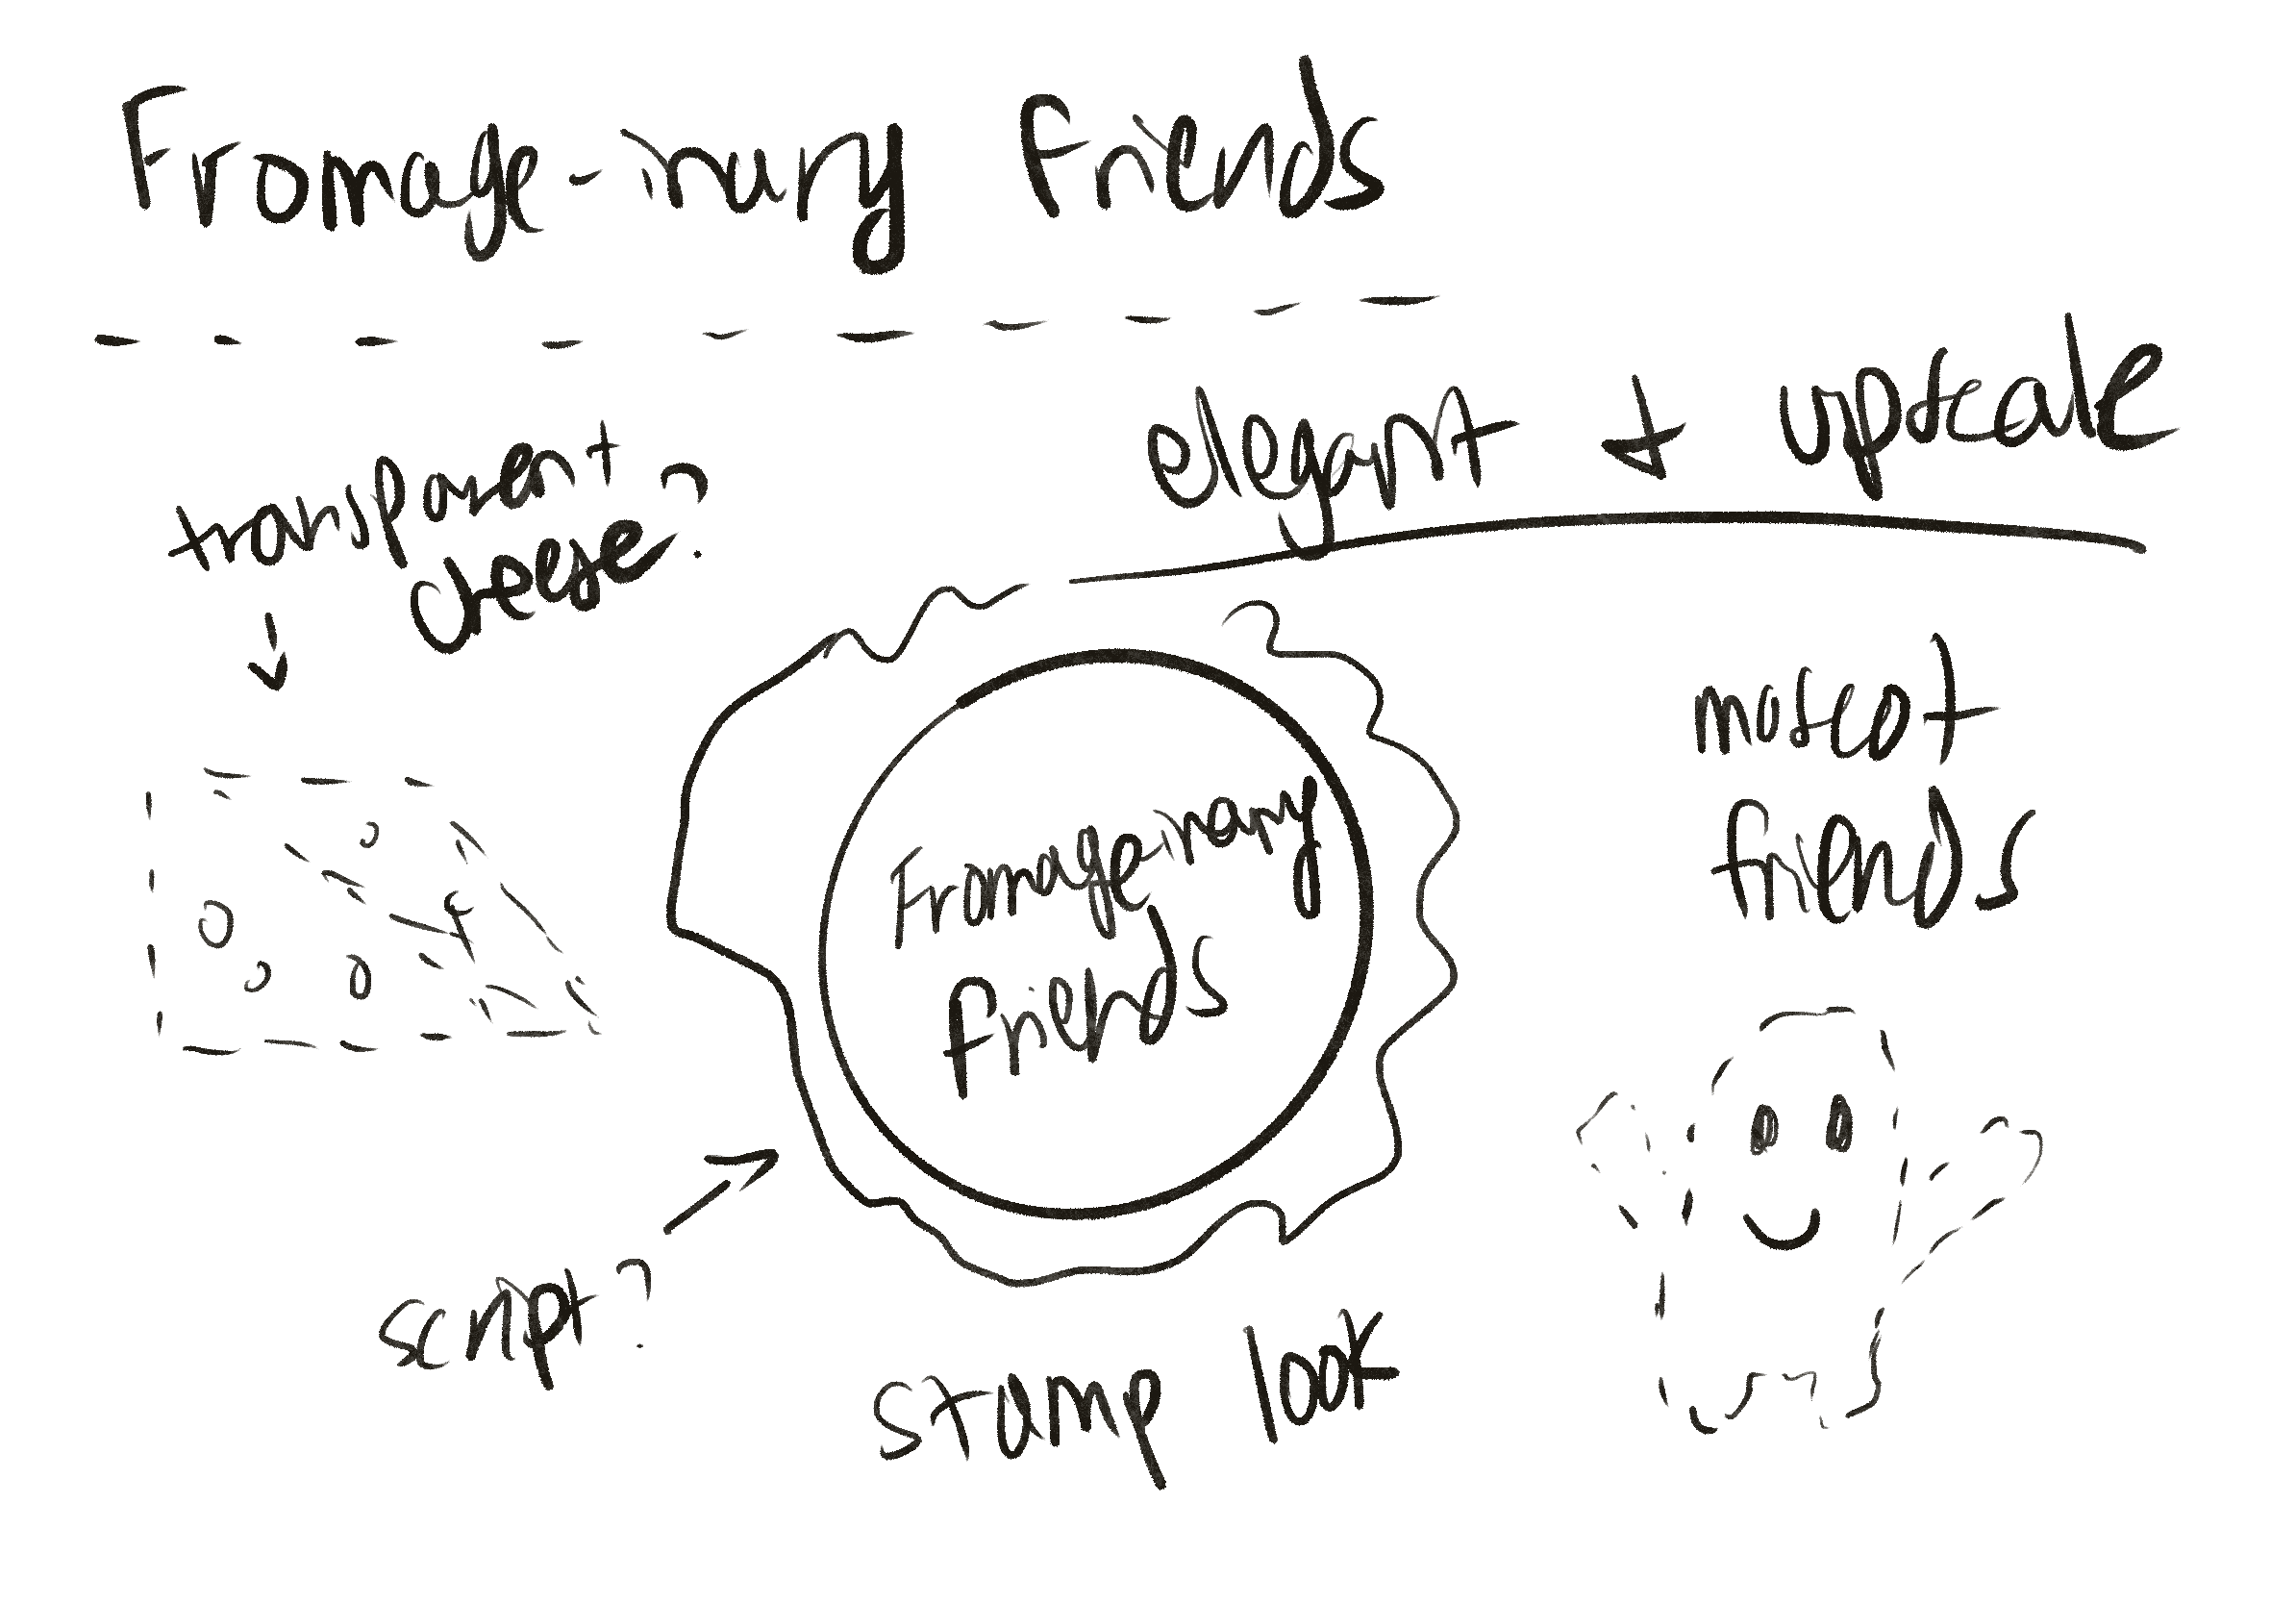 Fromage-inary Friends
elegant + upscale
transparent
cheese?
mascot
friends
Fromage-inary
Friends
script?
stamp look